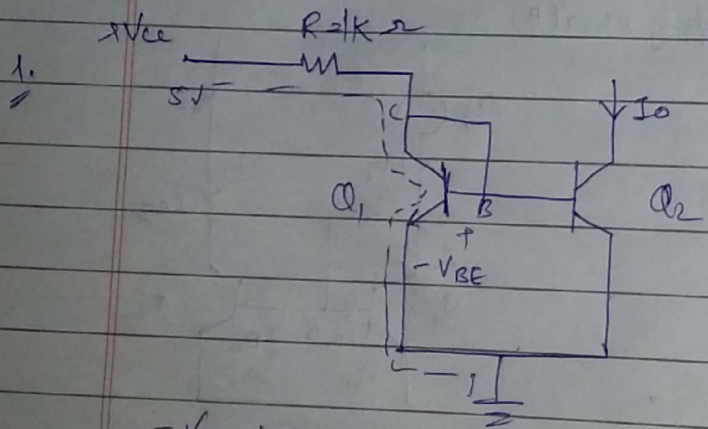 +Vcc
R=1K Ω
1.
5V
C
Io
Q1
B
Q2
+
- VBE